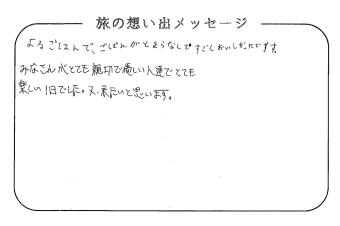 旅の想い出メッセージ
よるごはんで、ごはんがとようなしですごくおいしかたです。
みなさんがとても親切で優しい人達でとても
楽しい1日でした。又、来たいと思います。